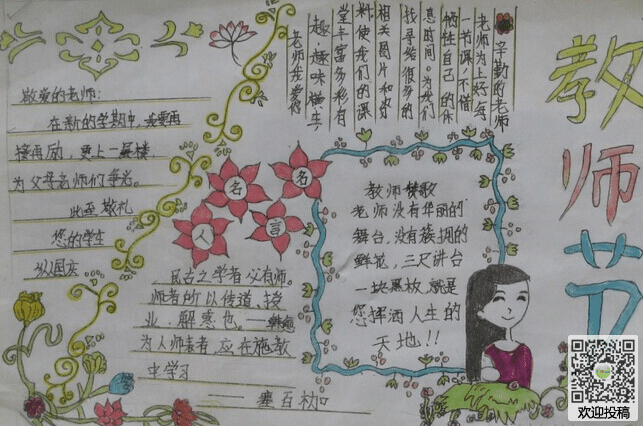 教师节
辛勤的老师
老师为上好每
一节课，不惜
牺牲自己的休
息时间。为我们
找寻给很多的
相关图片和好
料，使我们的课
堂丰富多彩有
趣，趣味横生
老师我爱你
敬爱的老师：
在新的学期中，我要再
接再励，更上一层楼
为父母老师们争光。
此至敬礼
您的学生
名
名
人
言
教师赞歌
老师没有华丽的
舞台，没有簇拥的
鲜花，三尺讲台
一块黑放就是
您挥洒人生的
天地!!
民古之学者必有师。
师者所以传道，授
业，解惑也。—韩愈
为人师表者应在施教
中学习
——塞百
欢迎投稿